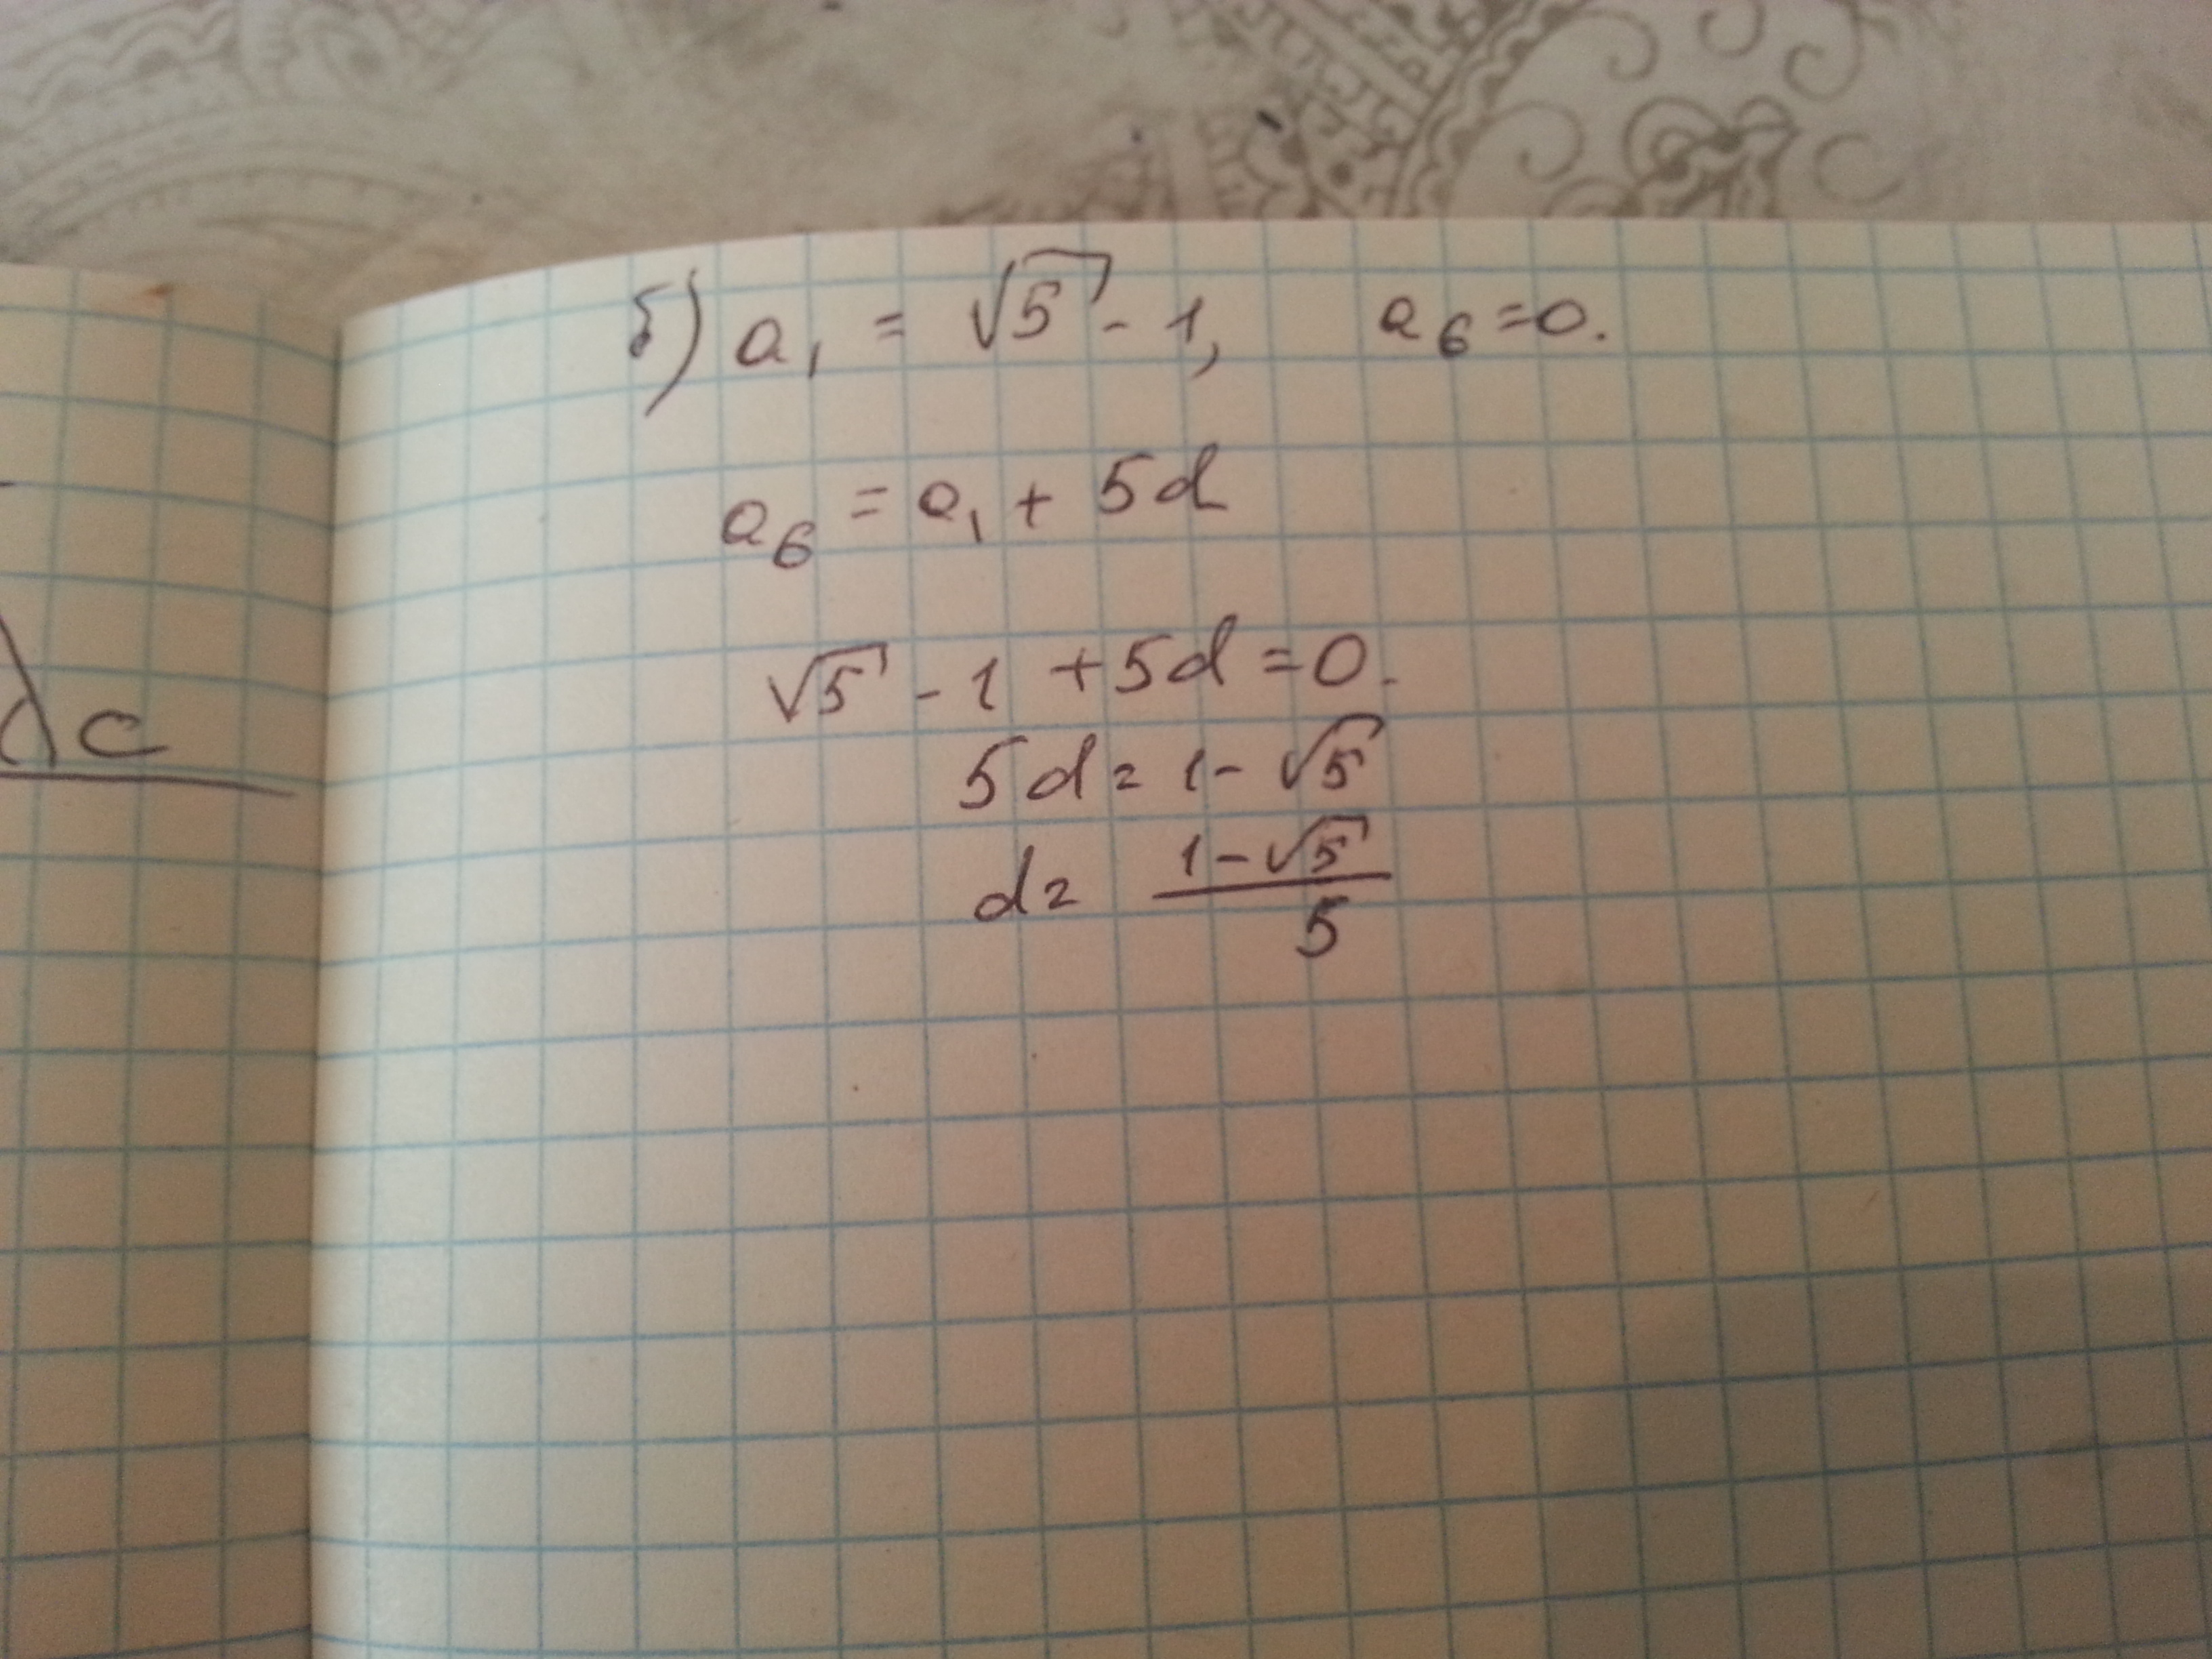 б) a₁ = √5 - 1, a₆ = 0.
a₆ = a₁ + 5d
√5 - 1 + 5d = 0.
5d = 1 - √5
d = (1 - √5)/5
c